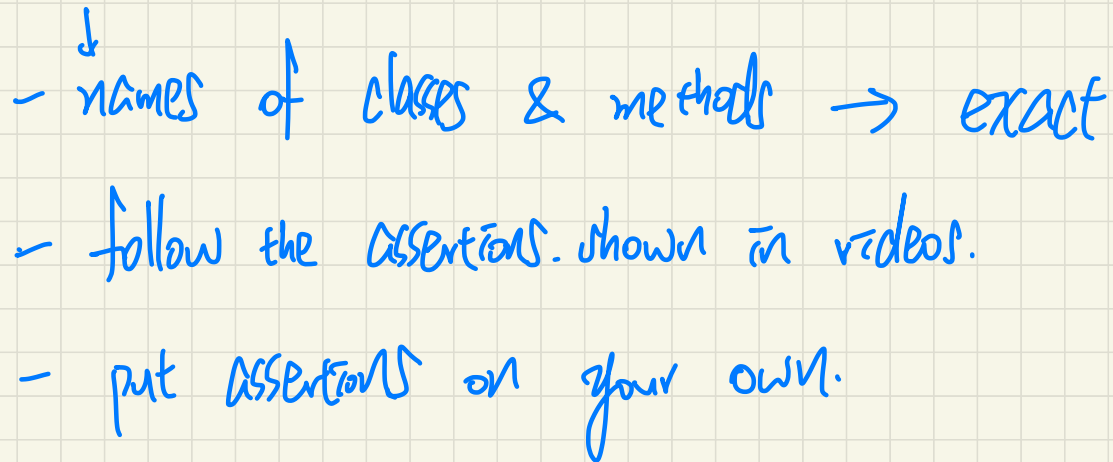 - names of classes & methods → exact
- follow the assertions. shown in videos.
- put assertions on your own.